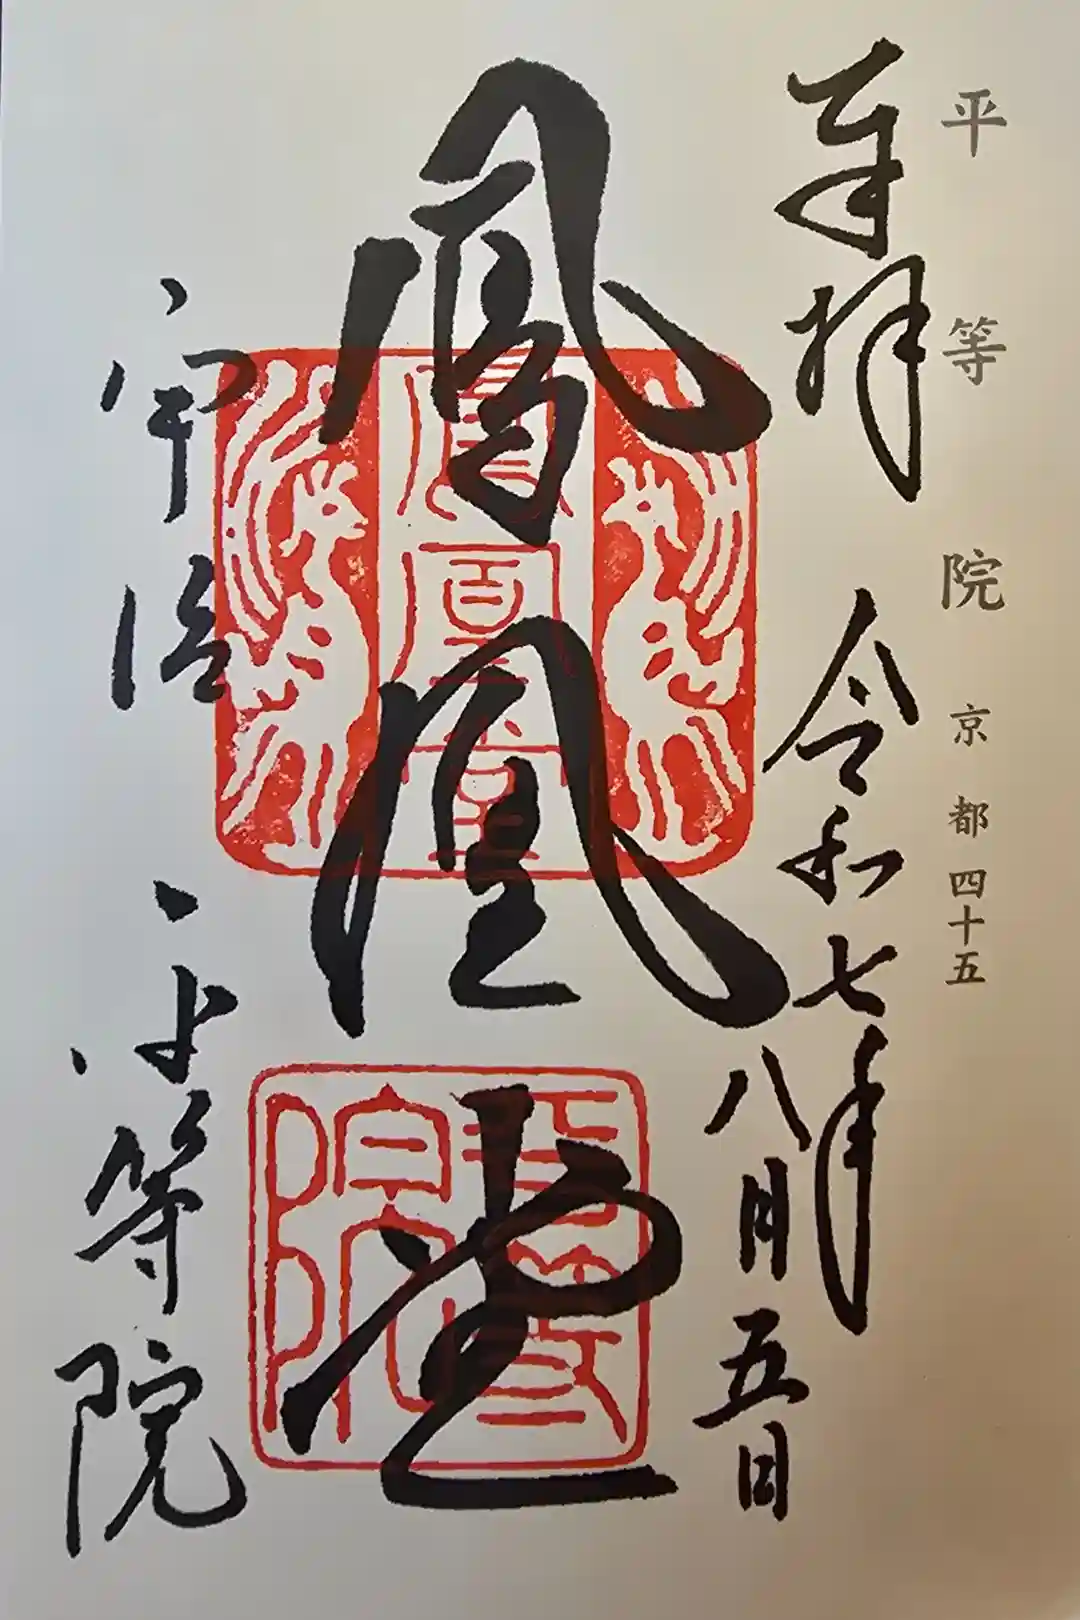 平等院 京都四十五
奉拝
令和七年
八月五日
鳳凰堂
宇治 平等院
鳳凰堂
平等院